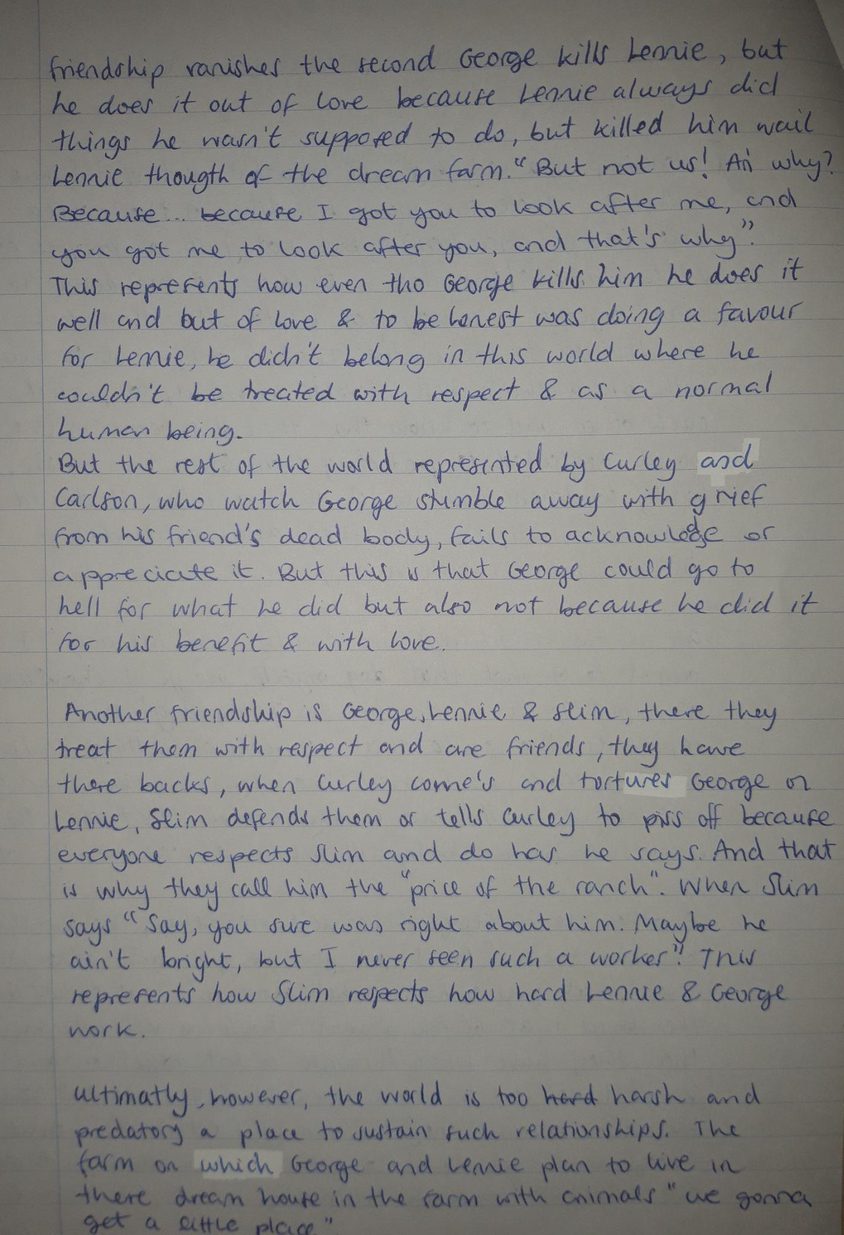 friendship vanishes the second George kills Lennie, but
he does it out of love because Lennie always did
things he wasn't supposed to do, but killed him wail
Lennie thougth of the dream farm. "But not us! An' why?
Because... because I got you to look after me, and
you got me to look after you, and that's why".
This represents how even tho George kills him he does it
well and but of love & to be honest was doing a favour
for Lennie, he didn't belong in this world where he
couldn't be treated with respect & as a normal
human being.
But the rest of the world represented by Curley and
Carlson, who watch George stumble away with grief
from his friend's dead body, fails to acknowledge or
appreciate it. But this is that George could go to
hell for what he did but also not because he did it
for his benefit & with love.
Another friendship is George, Lennie & Slim, there they
treat them with respect and are friends, they have
there backs, when Curley come's and tortures George or
Lennie, Slim defends them or tells Curley to piss off because
everyone respects Slim and do has he says. And that
is why they call him the "price of the ranch". When Slim
says "Say, you sure was right about him. Maybe he
ain't bright, but I never seen such a worker". This
represents how Slim respects how hard Lennie & George
work.
Ultimatly, however, the world is too hard harsh and
predatory a place to sustain such relationships. The
farm on which George and Lennie plan to live in
there dream house in the farm with animals "we gonna
get a little place"